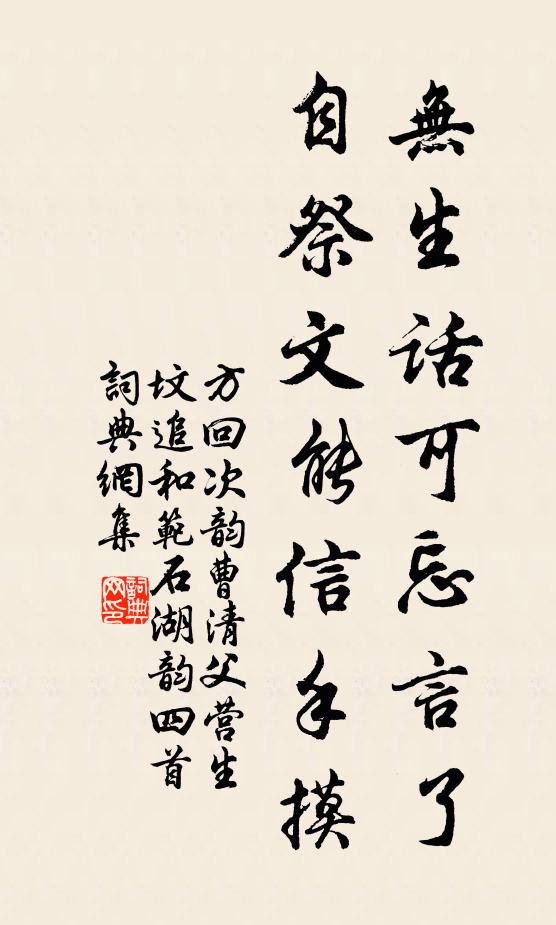 無生話可忘言了
自祭文能信手摸
方回次韵曹清父营生
坟追和範石湖韵四首
詞典網集